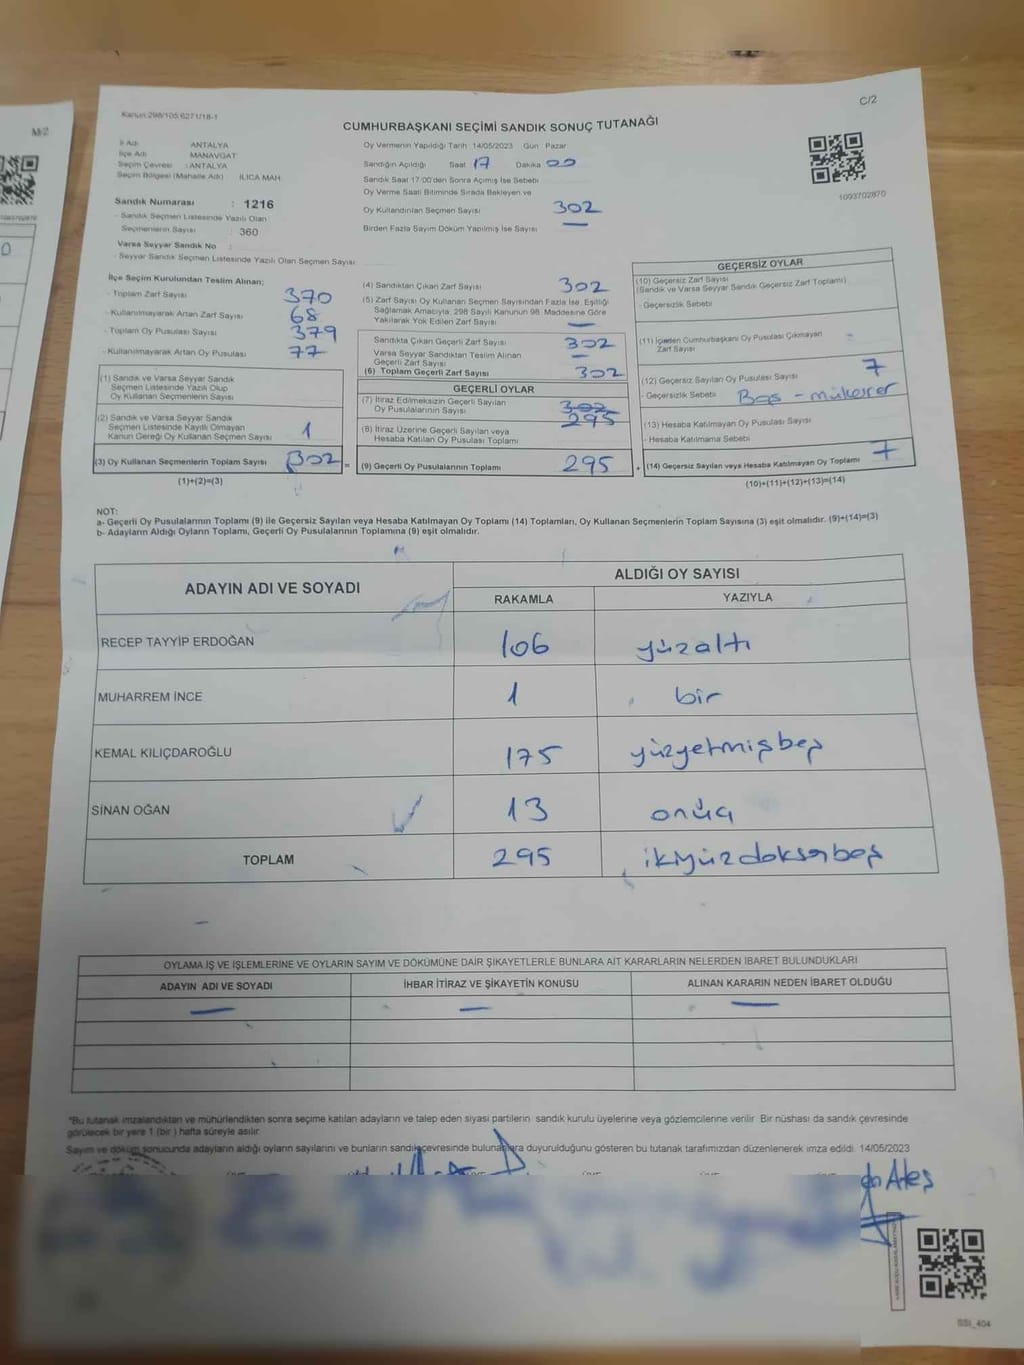 M/2
C/2
Kanun:298/105;6271/18-1
CUMHURBAŞKANI SEÇİMİ SANDIK SONUÇ TUTANAĞI
İl Adı ANTALYA
İlçe Adı MANAVGAT
Seçim Çevresi : ANTALYA
Seçim Bölgesi (Mahalle Adı) ILICA MAH
Sandık Numarası : 1216
- Sandık Seçmen Listesinde Yazılı Olan
Seçmenlerin Sayısı : 360
Varsa Seyyar Sandık No :
- Seyyar Sandık Seçmen Listesinde Yazılı Olan Seçmen Sayısı
Oy Vermenin Yapıldığı Tarih 14/05/2023 Gün Pazar
Sandığın Açıldığı Saat 17 Dakika 00
Sandık Saat 17:00'den Sonra Açılmış İse Sebebi
Oy Verme Saati Bitiminde Sırada Bekleyen ve
Oy Kullandırılan Seçmen Sayısı 302
Birden Fazla Sayım Döküm Yapılmış İse Sayısı —
1093702870
İlçe Seçim Kurulundan Teslim Alınan;
- Toplam Zarf Sayısı 370
- Kullanılmayarak Artan Zarf Sayısı 68
- Toplam Oy Pusulası Sayısı 379
- Kullanılmayarak Artan Oy Pusulası 77
(1) Sandık ve Varsa Seyyar Sandık
Seçmen Listesinde Yazılı Olup
Oy Kullanan Seçmenlerin Sayısı
(2) Sandık ve Varsa Seyyar Sandık
Seçmen Listesinde Kayıtlı Olmayan
Kanun Gereği Oy Kullanan Seçmen Sayısı 1
(3) Oy Kullanan Seçmenlerin Toplam Sayısı 302 =
(1)+(2)=(3)
(4) Sandıktan Çıkan Zarf Sayısı 302
(5) Zarf Sayısı Oy Kullanan Seçmen Sayısından Fazla İse, Eşitliği
Sağlamak Amacıyla, 298 Sayılı Kanunun 98. Maddesine Göre
Yakılarak Yok Edilen Zarf Sayısı —
Sandıkta Çıkan Geçerli Zarf Sayısı 302
Varsa Seyyar Sandıktan Teslim Alınan
Geçerli Zarf Sayısı —
(6) Toplam Geçerli Zarf Sayısı 302
GEÇERLİ OYLAR
(7) İtiraz Edilmeksizin Geçerli Sayılan
Oy Pusulalarının Sayısı 302 295
(8) İtiraz Üzerine Geçerli Sayılan veya
Hesaba Katılan Oy Pusulası Toplamı
(9) Geçerli Oy Pusulalarının Toplamı 295 +
GEÇERSİZ OYLAR
(10) Geçersiz Zarf Sayısı
(Sandık ve Varsa Seyyar Sandık Geçersiz Zarf Toplamı)
- Geçersizlik Sebebi
(11) İçinden Cumhurbaşkanı Oy Pusulası Çıkmayan
Zarf Sayısı
(12) Geçersiz Sayılan Oy Pusulası Sayısı 7
- Geçersizlik Sebebi Boş - mükerrer
(13) Hesaba Katılmayan Oy Pusulası Sayısı
- Hesaba Katılmama Sebebi
(14) Geçersiz Sayılan veya Hesaba Katılmayan Oy Toplamı 7
(10)+(11)+(12)+(13)=(14)
NOT:
a- Geçerli Oy Pusulalarının Toplamı (9) ile Geçersiz Sayılan veya Hesaba Katılmayan Oy Toplamı (14) Toplamları, Oy Kullanan Seçmenlerin Toplam Sayısına (3) eşit olmalıdır. (9)+(14)=(3)
b- Adayların Aldığı Oyların Toplamı, Geçerli Oy Pusulalarının Toplamına (9) eşit olmalıdır.
ADAYIN ADI VE SOYADI ALDIĞI OY SAYISI
RAKAMLA YAZIYLA
RECEP TAYYİP ERDOĞAN 106 yüzaltı
MUHARREM İNCE 1 bir
KEMAL KILIÇDAROĞLU 175 yüzyetmişbeş
SİNAN OĞAN 13 onüç
TOPLAM 295 ikiyüzdoksanbeş
OYLAMA İŞ VE İŞLEMLERİNE VE OYLARIN SAYIM VE DÖKÜMÜNE DAİR ŞİKAYETLERLE BUNLARA AİT KARARLARIN NELERDEN İBARET BULUNDUKLARI
ADAYIN ADI VE SOYADI İHBAR İTİRAZ VE ŞİKAYETİN KONUSU ALINAN KARARIN NEDEN İBARET OLDUĞU
— — —
*Bu tutanak imzalandıktan ve mühürlendikten sonra seçime katılan adayların ve talep eden siyasi partilerin sandık kurulu üyelerine veya gözlemcilerine verilir. Bir nüshası da sandık çevresinde
görülecek bir yere 1 (bir) hafta süreyle asılır.
Sayım ve döküm sonucunda adayların aldığı oyların sayılarını ve bunların sandık çevresinde bulunanlara duyurulduğunu gösteren bu tutanak tarafımızdan düzenlenerek imza edildi. 14/05/2023
Ateş
SSI_404